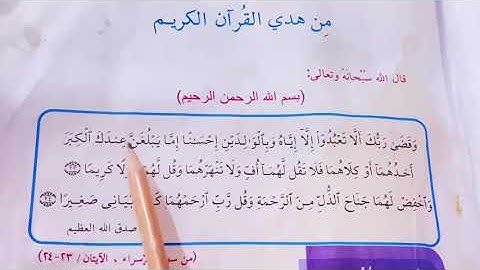 مِن هدي القُرآن الكريـم
قال الله سُبْحانَهُ وتعالى:
(بسم الله الرحمن الرحيم)
وَقَضَىٰ رَبُّكَ أَلَّا تَعْبُدُوٓا۟ إِلَّآ إِيَّاهُ وَبِٱلْوَٰلِدَيْنِ إِحْسَـٰنًا إِمَّا يَبْلُغَنَّ عِندَكَ ٱلْكِبَرَ
أَحَدُهُمَآ أَوْ كِلَاهُمَا فَلَا تَقُل لَّهُمَآ أُفٍّ وَلَا تَنْهَرْهُمَا وَقُل لَّهُمَا كَرِيمًا ﴿٢٣﴾
وَٱخْفِضْ لَهُمَا جَنَاحَ ٱلذُّلِّ مِنَ ٱلرَّحْمَةِ وَقُل رَّبِّ ٱرْحَمْهُمَا صَغِيرًا ﴿٢٤﴾
صدق الله العظيم
(من الآيتان / ٢٣-٢٤)